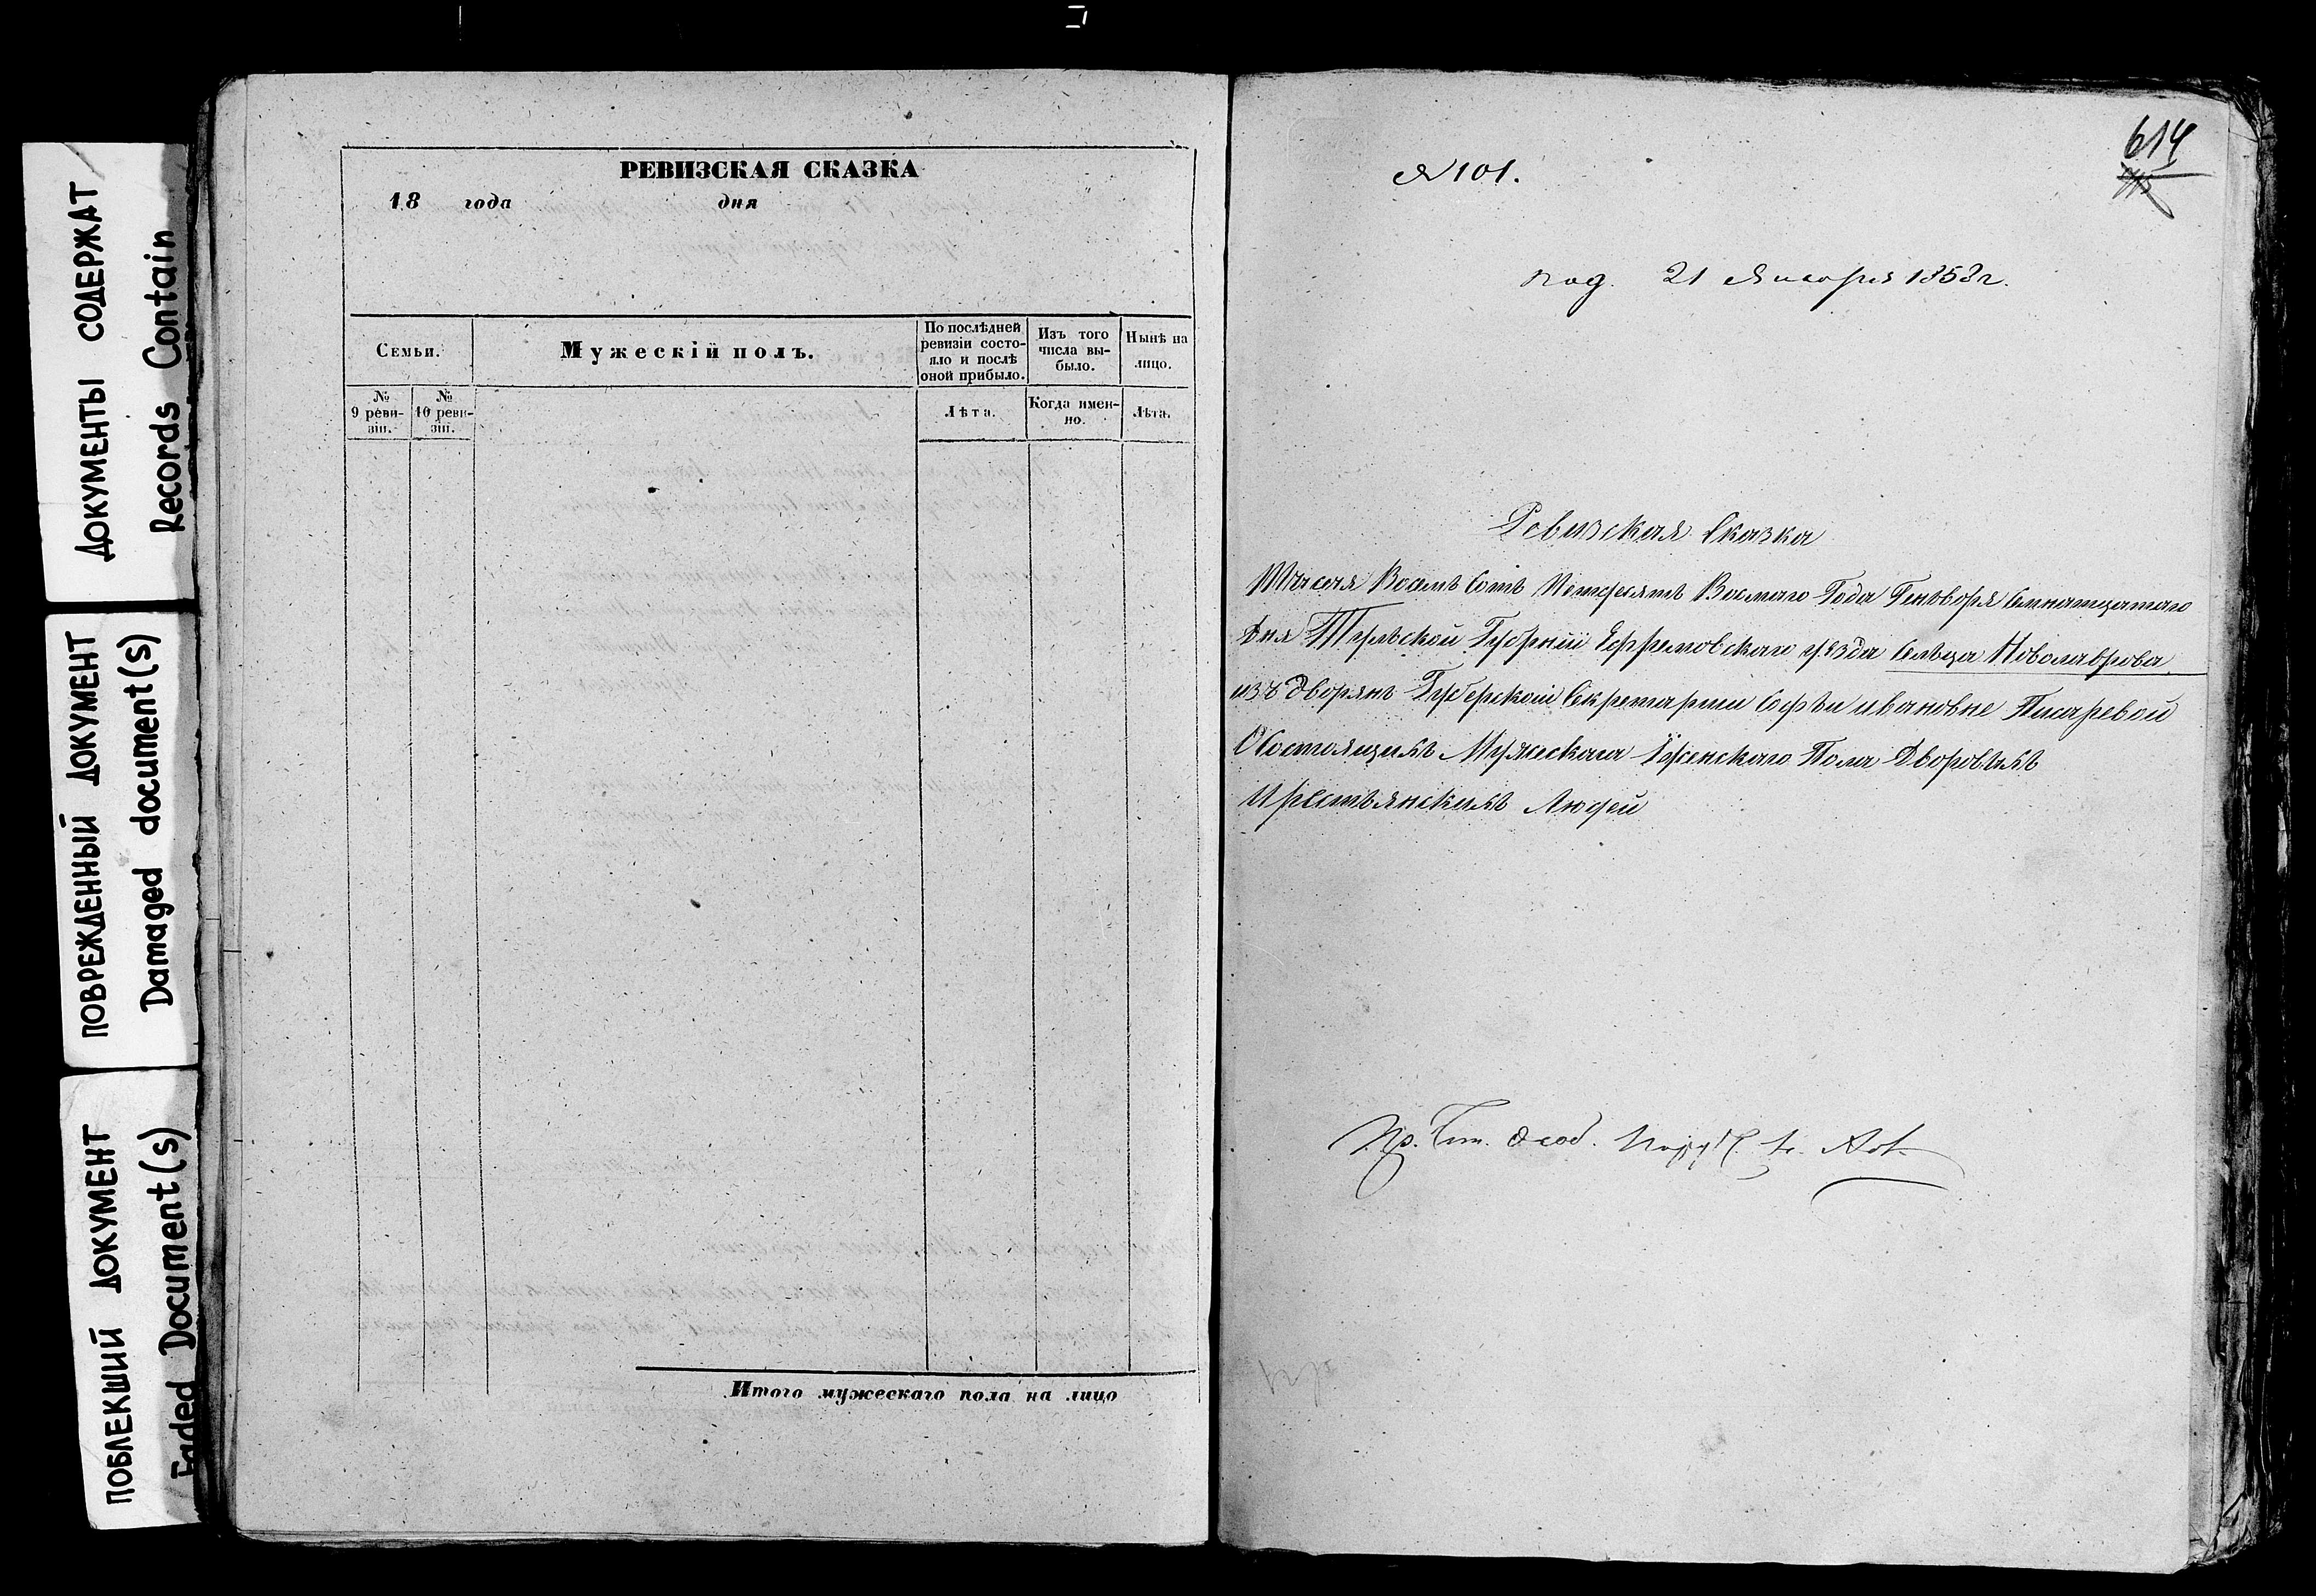 ДОКУМЕНТЫ СОДЕРЖАТ
Records Contain
ПОВРЕЖДЕННЫЙ ДОКУМЕНТ
Damaged document(s)
ПОБЛЕКШИЙ ДОКУМЕНТ
Faded Document(s)
РЕВИЗСКАЯ СКАЗКА
18 года дня
Семьи.
Мужескій полъ.
По послѣдней ревизіи состояло и послѣ оной прибыло.
Изъ того числа выбыло.
Нынѣ на лицо.
№ 9 ревизіи.
№ 10 ревизіи.
Лѣта.
Когда именно.
Лѣта.
Итого мужескаго пола на лицо
614
№ 101.
под. 21 Января 1858 г.
Ревизская Сказка
Тысеча Восемь Сотъ Петдесятъ Восмаго Года Генъворя Семнатцатаго
Дня Тульской Губерніи Ефремовскаго уезда Сельца Новолаврова
изъ дворянъ Губерской Секретарши Софьи ивановне Писаревой
Состоящихъ Мужескаго Іженскаго Пола Дворовыхъ
Икрестьянскихъ Людей